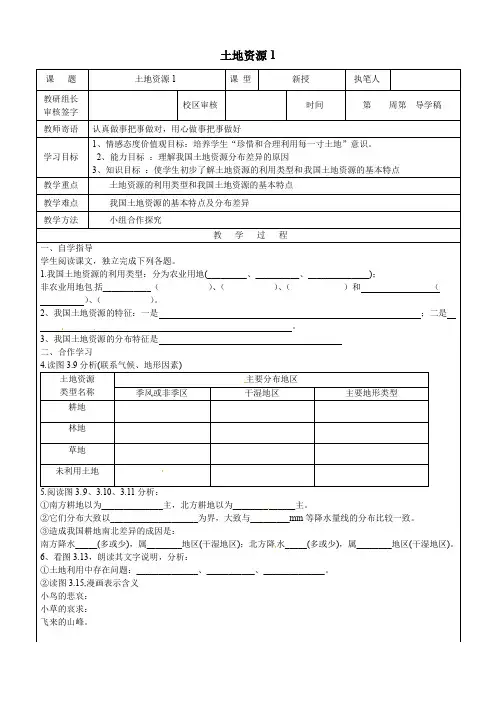 土地资源1
课 题 土地资源1 课 型 新授 执笔人
教研组长审核签字 校区审核 时间 第 周第 导学稿
教师寄语 认真做事把事做对，用心做事把事做好
学习目标
1、情感态度价值观目标：培养学生“珍惜和合理利用每一寸土地”意识。
2、能力目标 ：理解我国土地资源分布差异的原因
3、知识目标 ：使学生初步了解土地资源的利用类型和我国土地资源的基本特点
教学重点 土地资源的利用类型和我国土地资源的基本特点
教学难点 我国土地资源的基本特点及分布差异
教学方法 小组合作探究
教 学 过 程
一、自学指导
学生阅读课文，独立完成下列各题。
1.我国土地资源的利用类型：分为农业用地(________、_________、____________);
非农业用地包括__________（ ）、（ ）、（ ）和_______________（
）、（ ）。
2、我国土地资源的特征：一是____________________；二是__
____________________。
3、我国土地资源的分布特征是____________________
二、合作学习
4.读图3.9分析(联系气候、地形因素)
土地资源类型名称 主要分布地区
季风或非季区 干湿地区 主要地形类型
耕地
林地
草地
未利用土地
5.阅读图3.9、3.10、3.11分析：
①南方耕地以为____________主，北方耕地以为____________主。
②它们分布大致以__________________为界，大致与________mm等降水量线的分布比较一致。
③造成我国耕地南北差异的成因是：
南方降水____(多或少)，属_______地区(干湿地区)；北方降水____(多或少)，属_______地区(干湿地区)。
6、看图3.13，朗读其文字说明，分析：
①土地利用中存在问题：____________、__________、____________。
②读图3.15,漫画表示含义
小鸟的悲哀：
小草的哀求：
飞来的山峰。